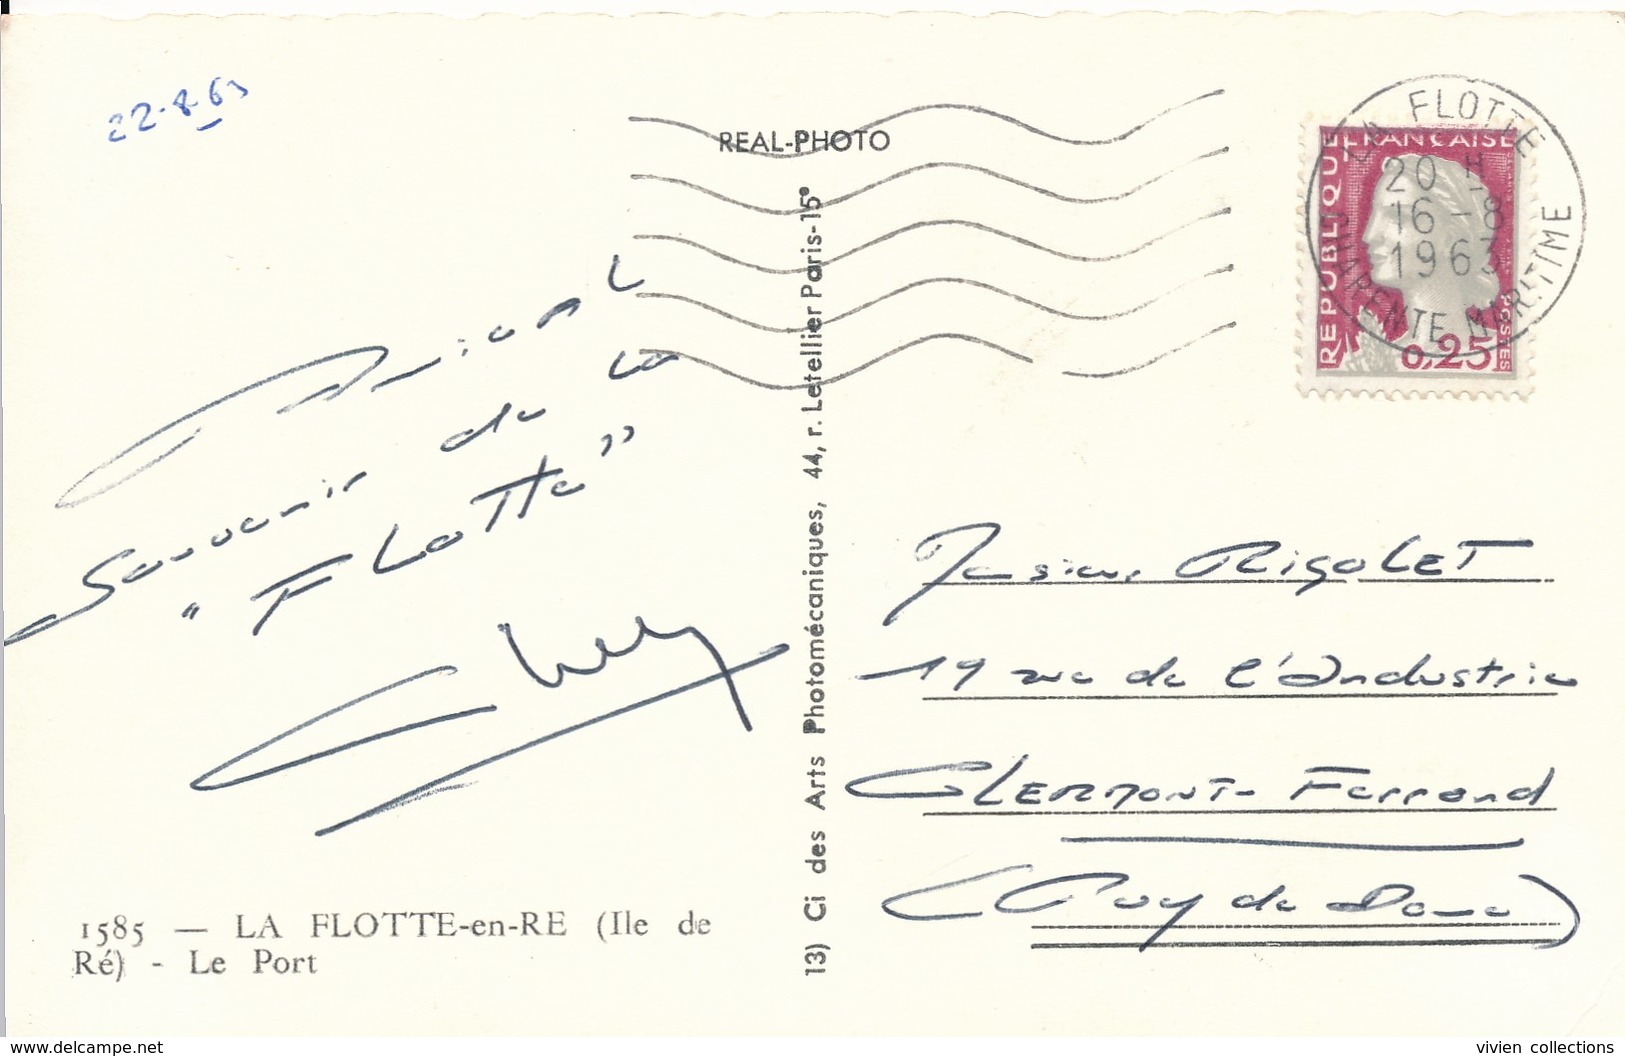 22-8-63
REAL-PHOTO
LA FLOTTE
20 H
16 - 8
1963
CHARENTE MARITIME
REPUBLIQUE FRANÇAISE
POSTES
0,25
Amical
Souvenir de la
"FLOTTE"
13) Ci des Arts Photomécaniques, 44, r. Letellier Paris-15°
RIGOLET
19 rue de l'Industrie
CLERMONT-Ferrand
(Puy de Dome)
1585 — LA FLOTTE-en-RE (Ile de
Ré) - Le Port
delcampe.net
vivien collections